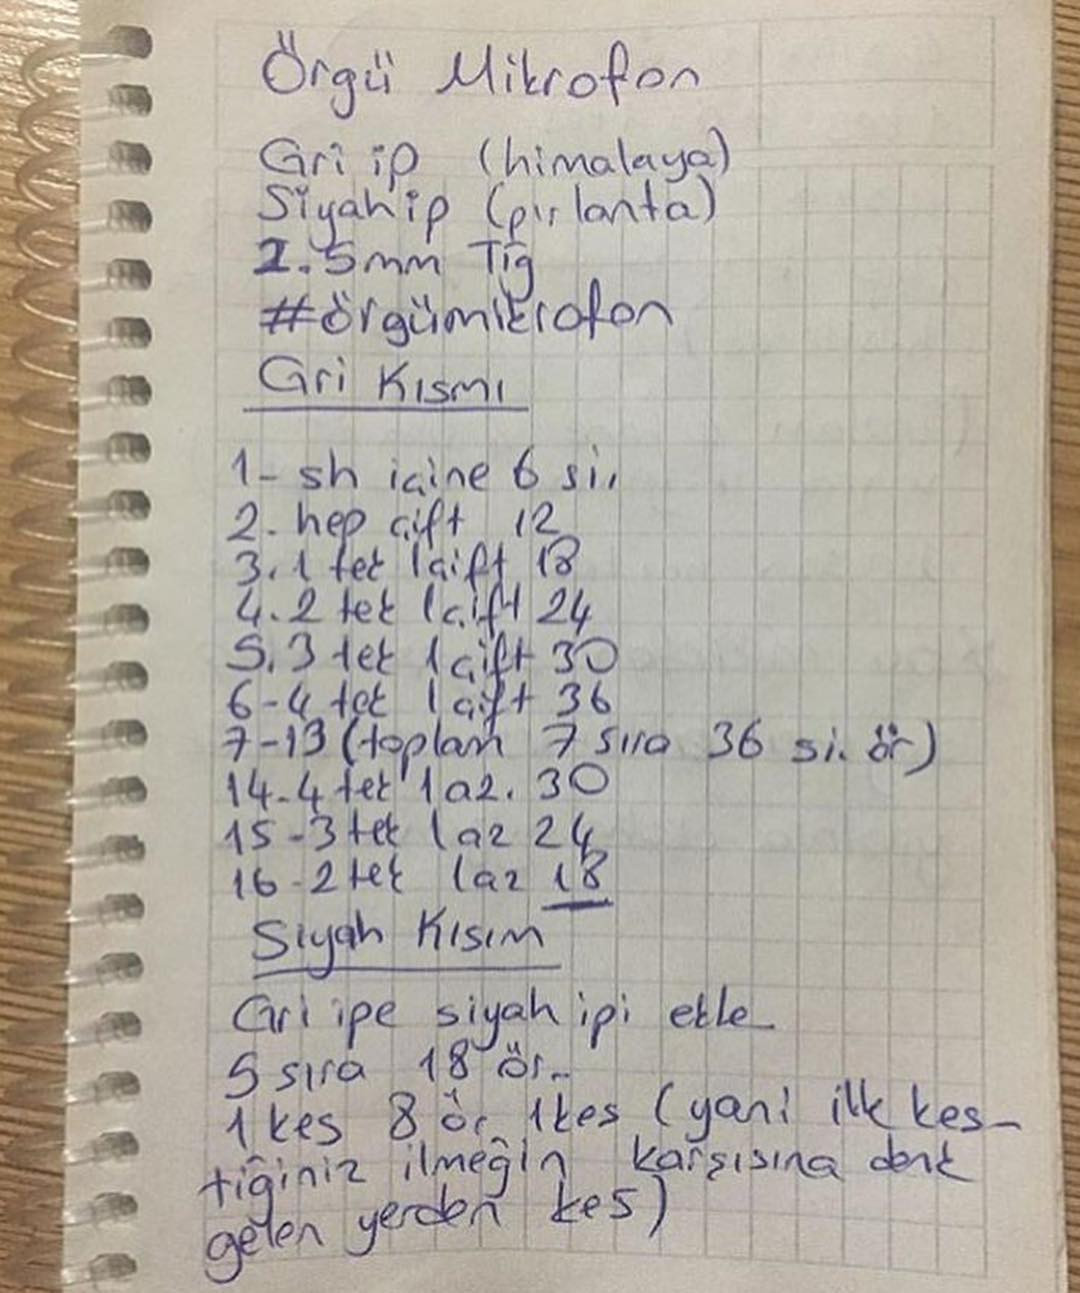 Örgü Mikrofon
Gri ip (himalaya)
Siyah ip (pırlanta)
2.5mm Tığ
#örgümikrofon
Gri Kısmı
1- sh içine 6 si.
2. hep çift 12
3. 1 tek 1çift 18
4. 2 tek 1çift 24
5. 3 tek 1çift 30
6-4 tek 1çift 36
7-13 (toplam 7 sıra 36 si. ör)
14-4 tek 1az. 30
15-3 tek 1az 24
16-2 tek 1az 18
Siyah Kısım
Gri ipe siyah ipi ekle
5 sıra 18 ör.
1 kes 8 ör 1kes (yani ilk kes-
tiğiniz ilmeğin karşısına denk
gelen yerden kes)